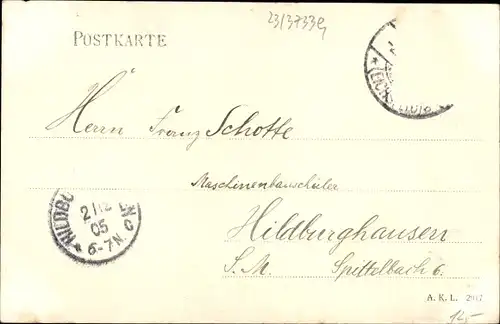 23/3733g
POSTKARTE
Herrn Franz Schotte
Maschinenbauschüler
Hildburghausen
S. M. Spittelbach 6.
HILDBU EN
2 1
05
* 6-7N c
A. K. L. 2917
12,-